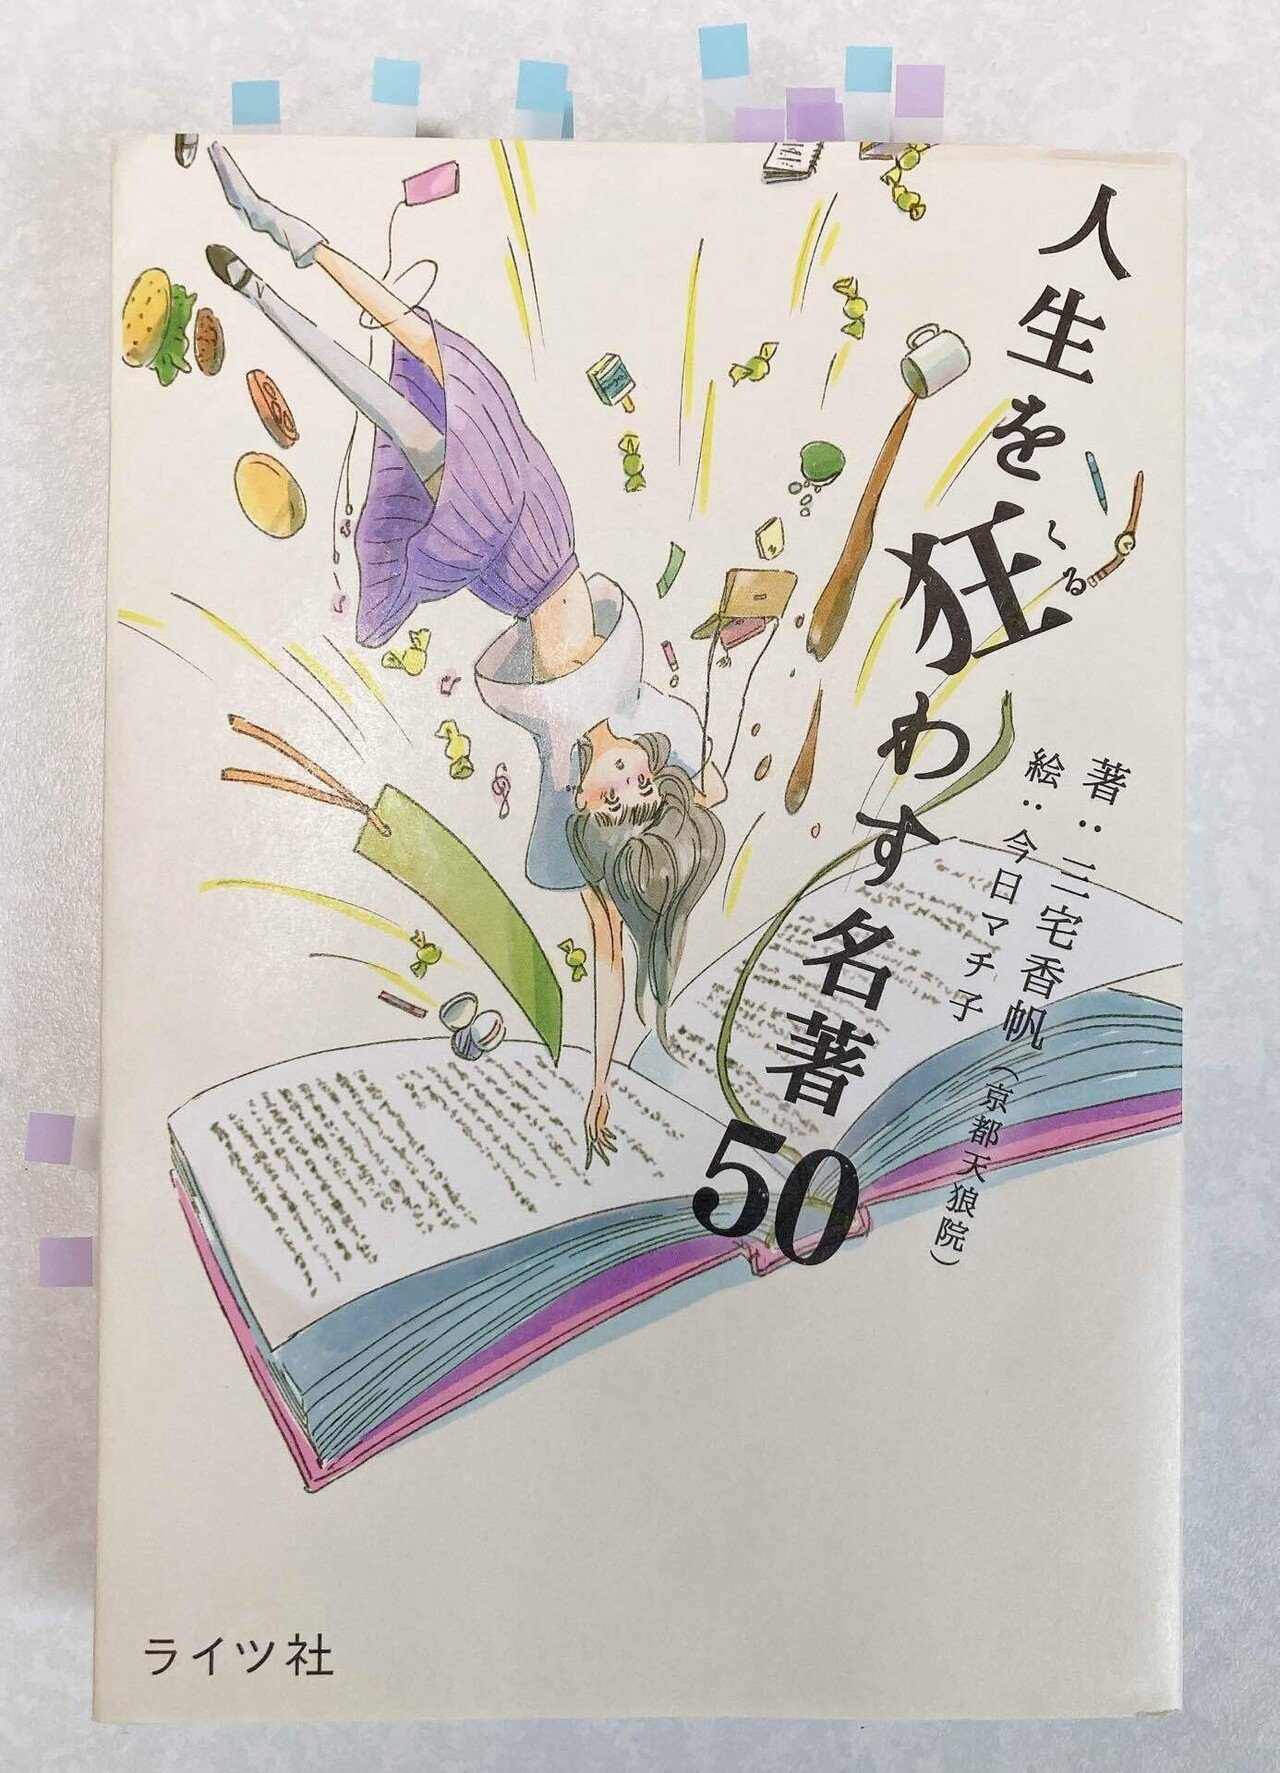 人生を狂わす名著50
くる
著：三宅香帆（京都天狼院）
絵：今日マチ子
ライツ社